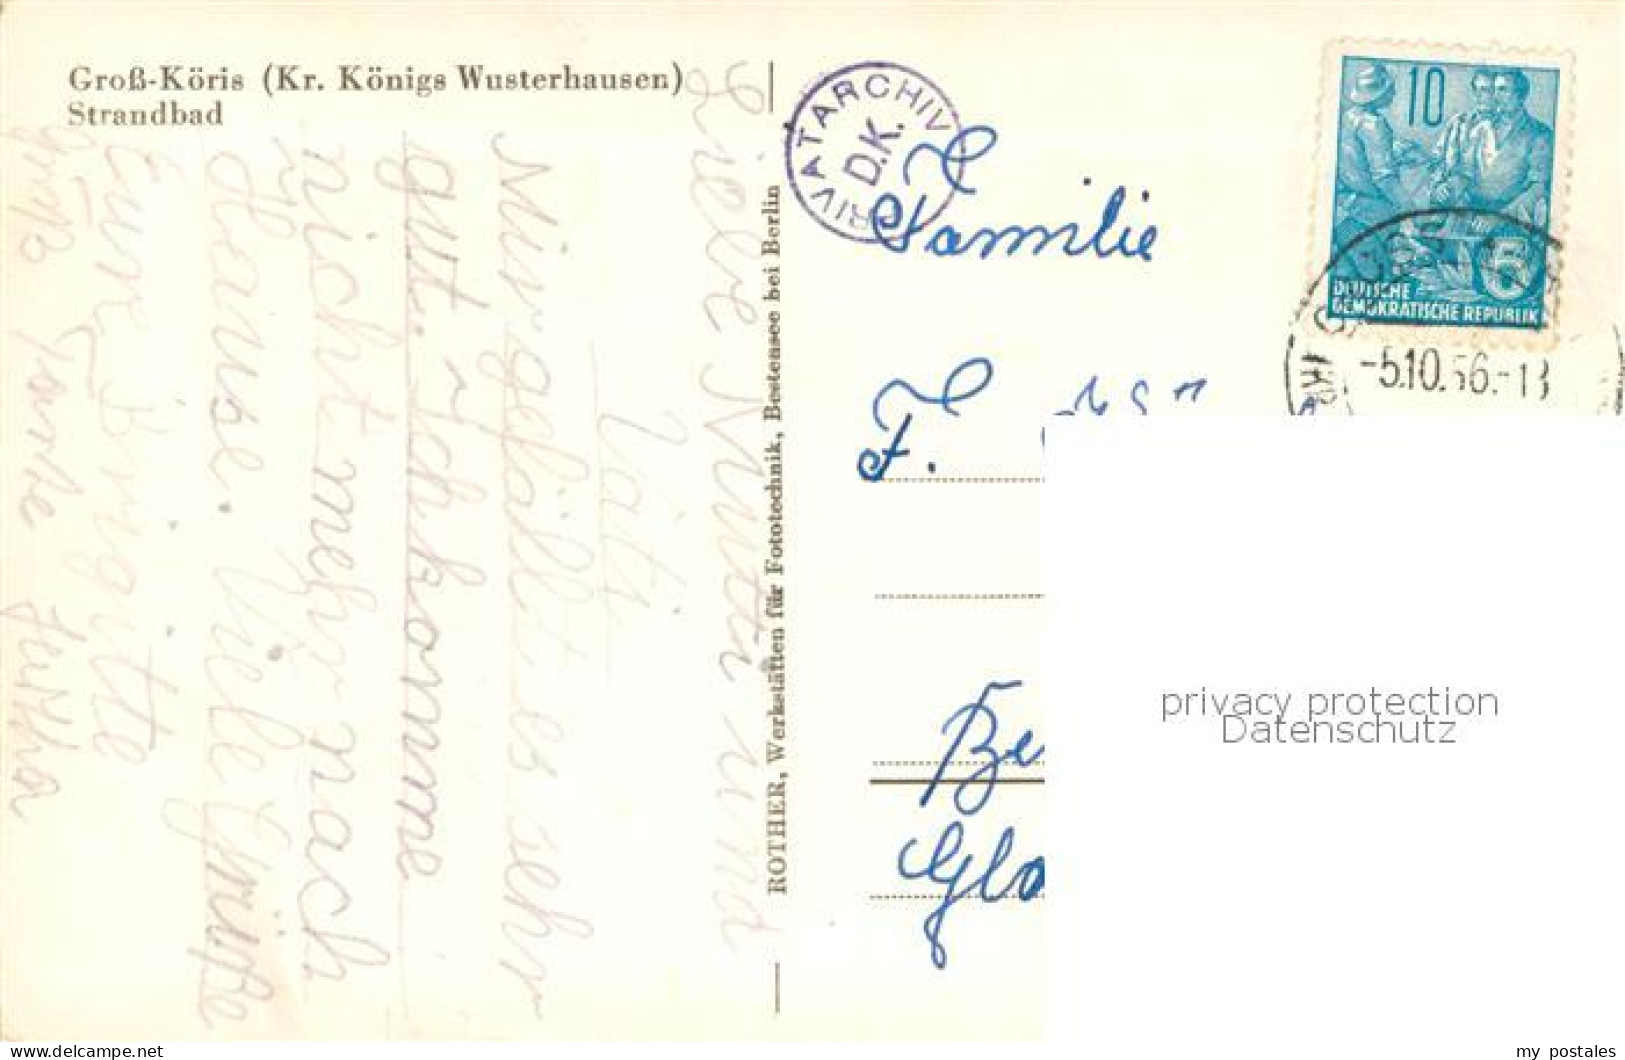 Groß-Köris (Kr. Königs Wusterhausen)
Strandbad
Liebe Mutti und
Vati
Mir gefällt es sehr
gut. Ich komme
nicht mehr nach
Hause. Viele Grüße
Eure Brigitte
Gruß Tante Jutta
ROTHER, Werkstätten für Fototechnik, Bestensee bei Berlin
PRIVATARCHIV
D.K.
Familie
F.
Be
Gla
10
5
DEUTSCHE
DEMOKRATISCHE REPUBLIK
-5.10.56.-13
privacy protection
Datenschutz
www.delcampe.net
my_postales